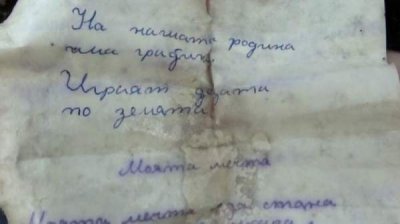 На нашата родина
има графит.
Играят децата
по земята.
Моята мечта
Моята мечта е да стана